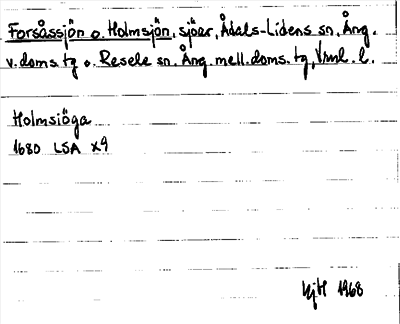 Forsåssjön o. Holmsjön, sjöar, Ådals-Lidens sn, Ång.
v. doms. tg o. Resele sn. Ång. mell. doms. tg, Vrnl. l.
Holmsiöga
1680 LSA X9
1968